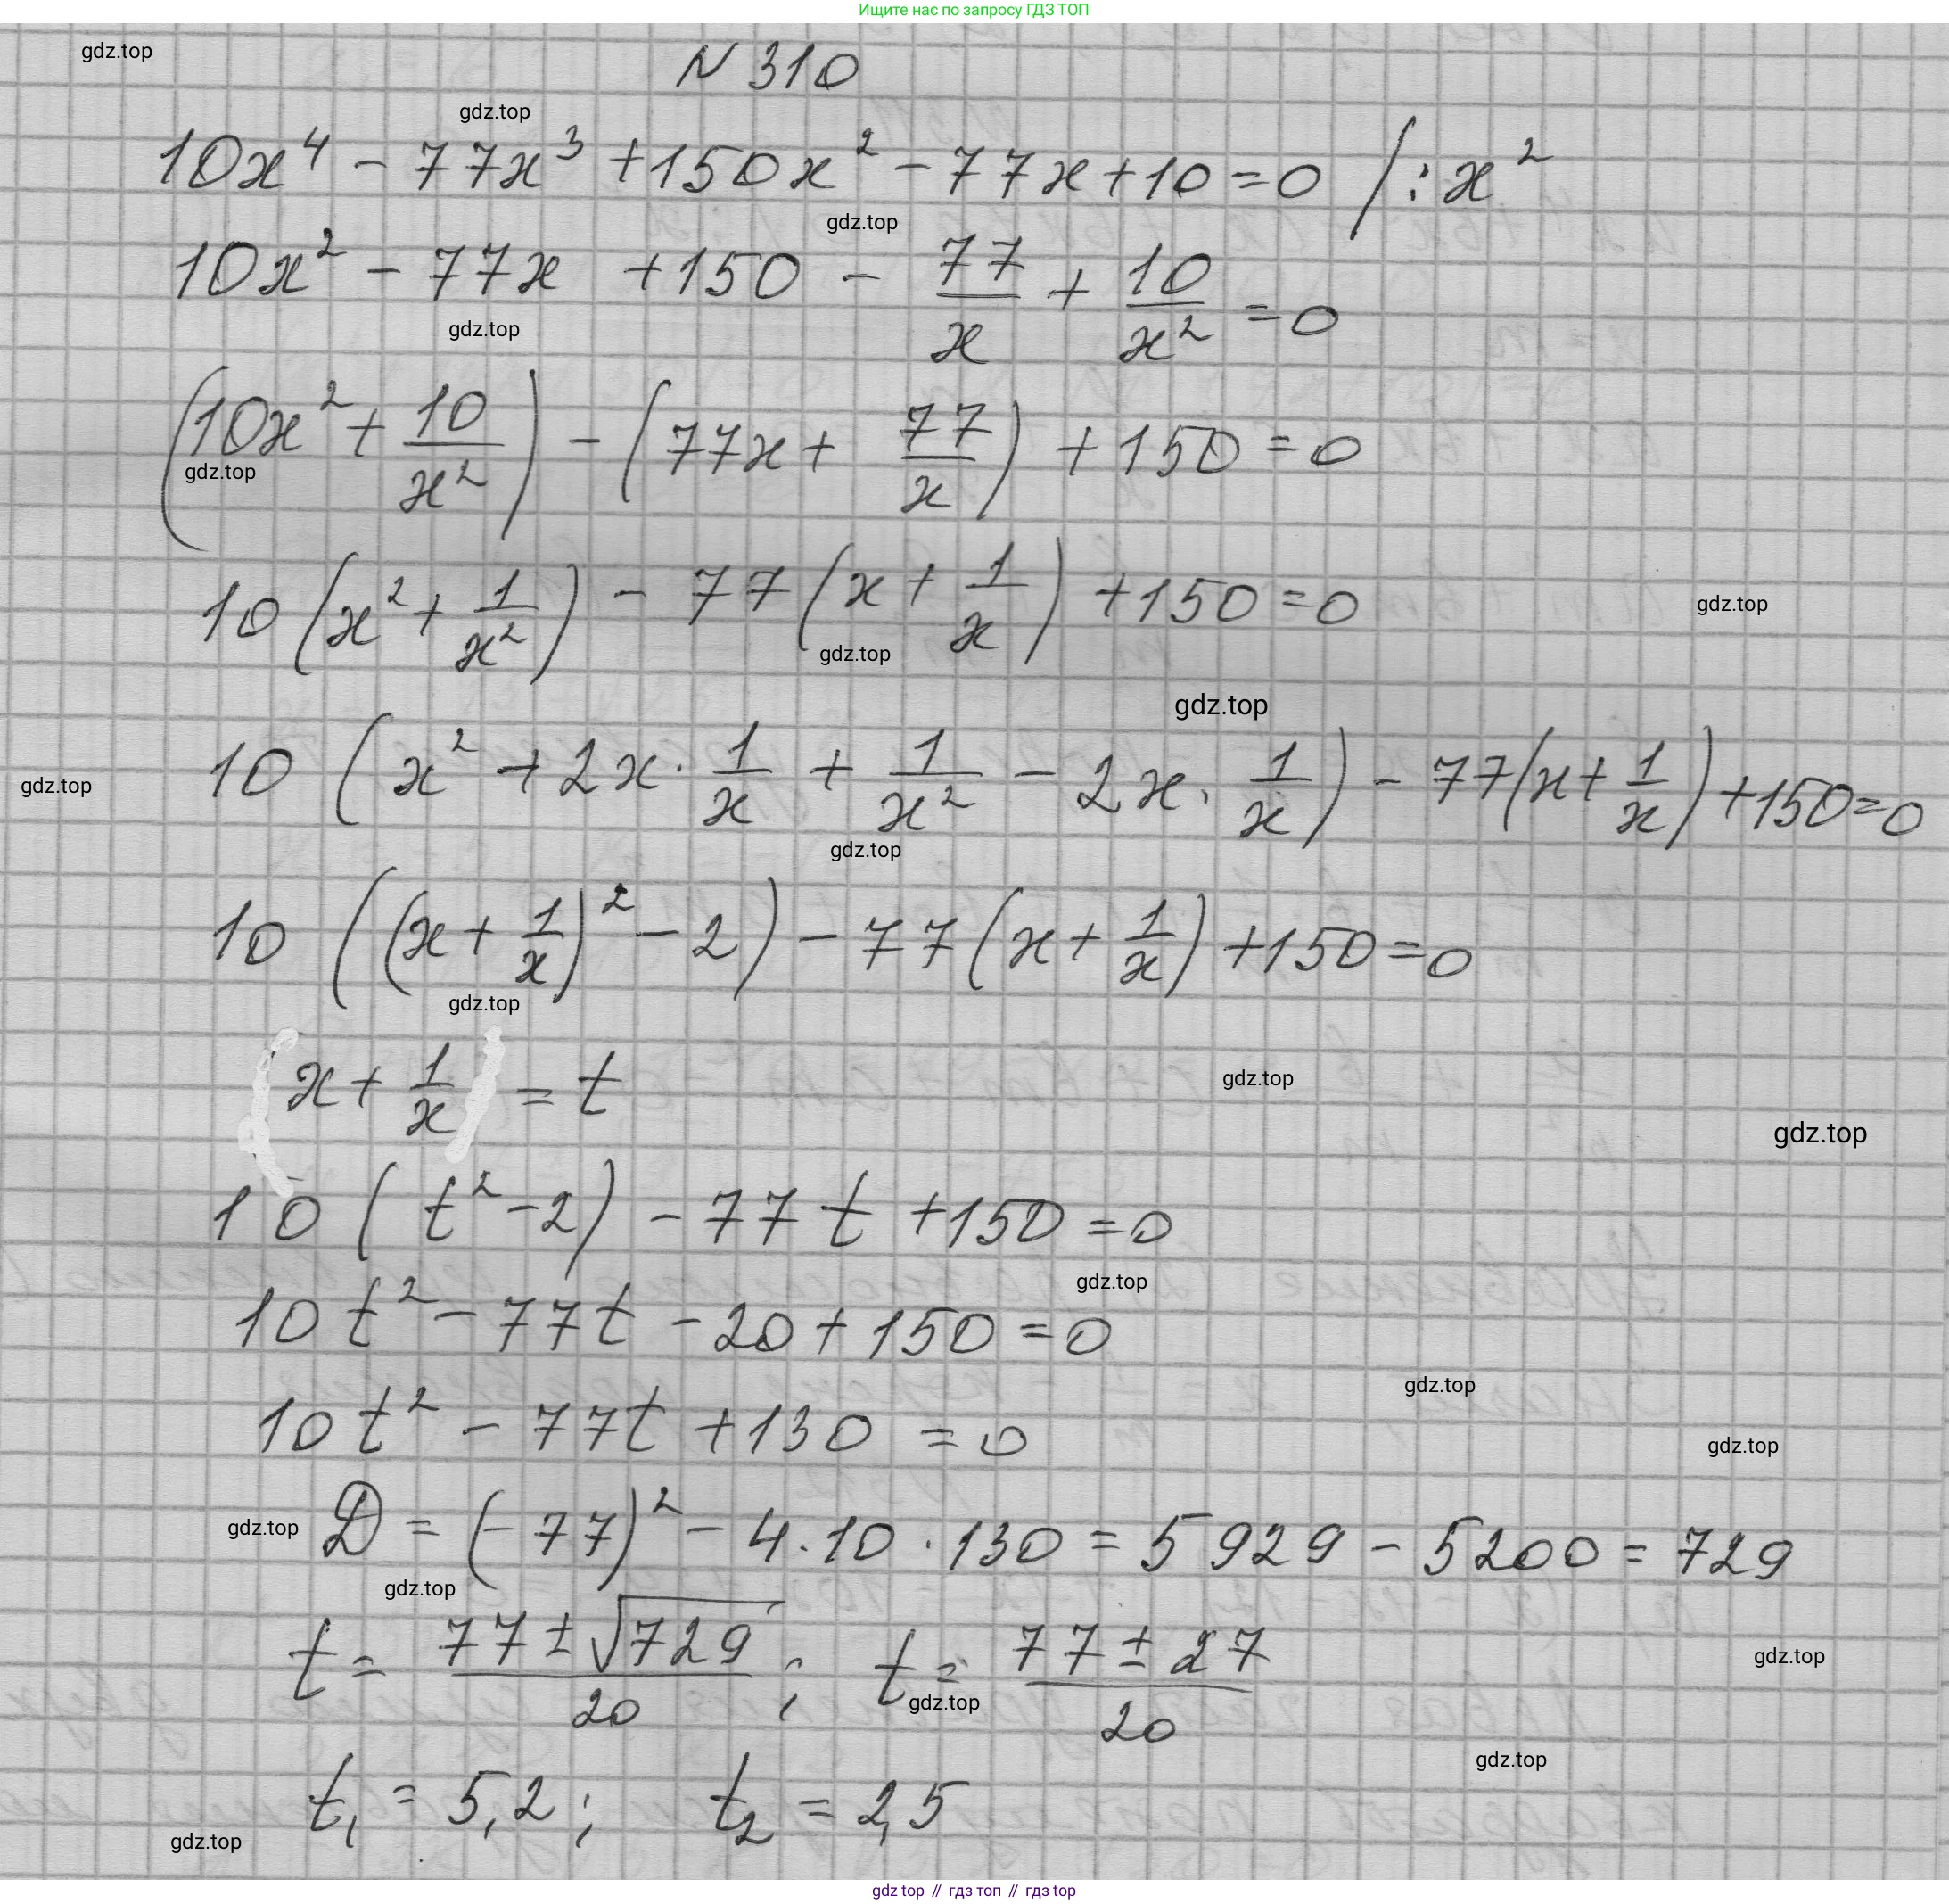 Ищите нас по запросу ГДЗ ТОП
gdz.top
N 310
gdz.top
10x⁴ - 77x³ + 150x² - 77x + 10 = 0 / : x²
gdz.top
10x² - 77x + 150 - 77/x + 10/x² = 0
gdz.top
(10x² + 10/x²) - (77x + 77/x) + 150 = 0
gdz.top
10(x² + 1/x²) - 77(x + 1/x) + 150 = 0
gdz.top
gdz.top
gdz.top
10(x² + 2x · 1/x + 1/x² - 2x · 1/x) - 77(x + 1/x) + 150 = 0
gdz.top
gdz.top
10((x + 1/x)² - 2) - 77(x + 1/x) + 150 = 0
gdz.top
x + 1/x = t
gdz.top
gdz.top
10(t² - 2) - 77t + 150 = 0
gdz.top
10t² - 77t - 20 + 150 = 0
gdz.top
10t² - 77t + 130 = 0
gdz.top
D = (-77)² - 4 · 10 · 130 = 5929 - 5200 = 729
gdz.top
gdz.top
t = (77 ± √729)/20 ; t = (77 ± 27)/20
gdz.top
gdz.top
gdz.top
t₁ = 5,2 ; t₂ = 2,5
gdz.top
gdz top // гдз топ // гдз top